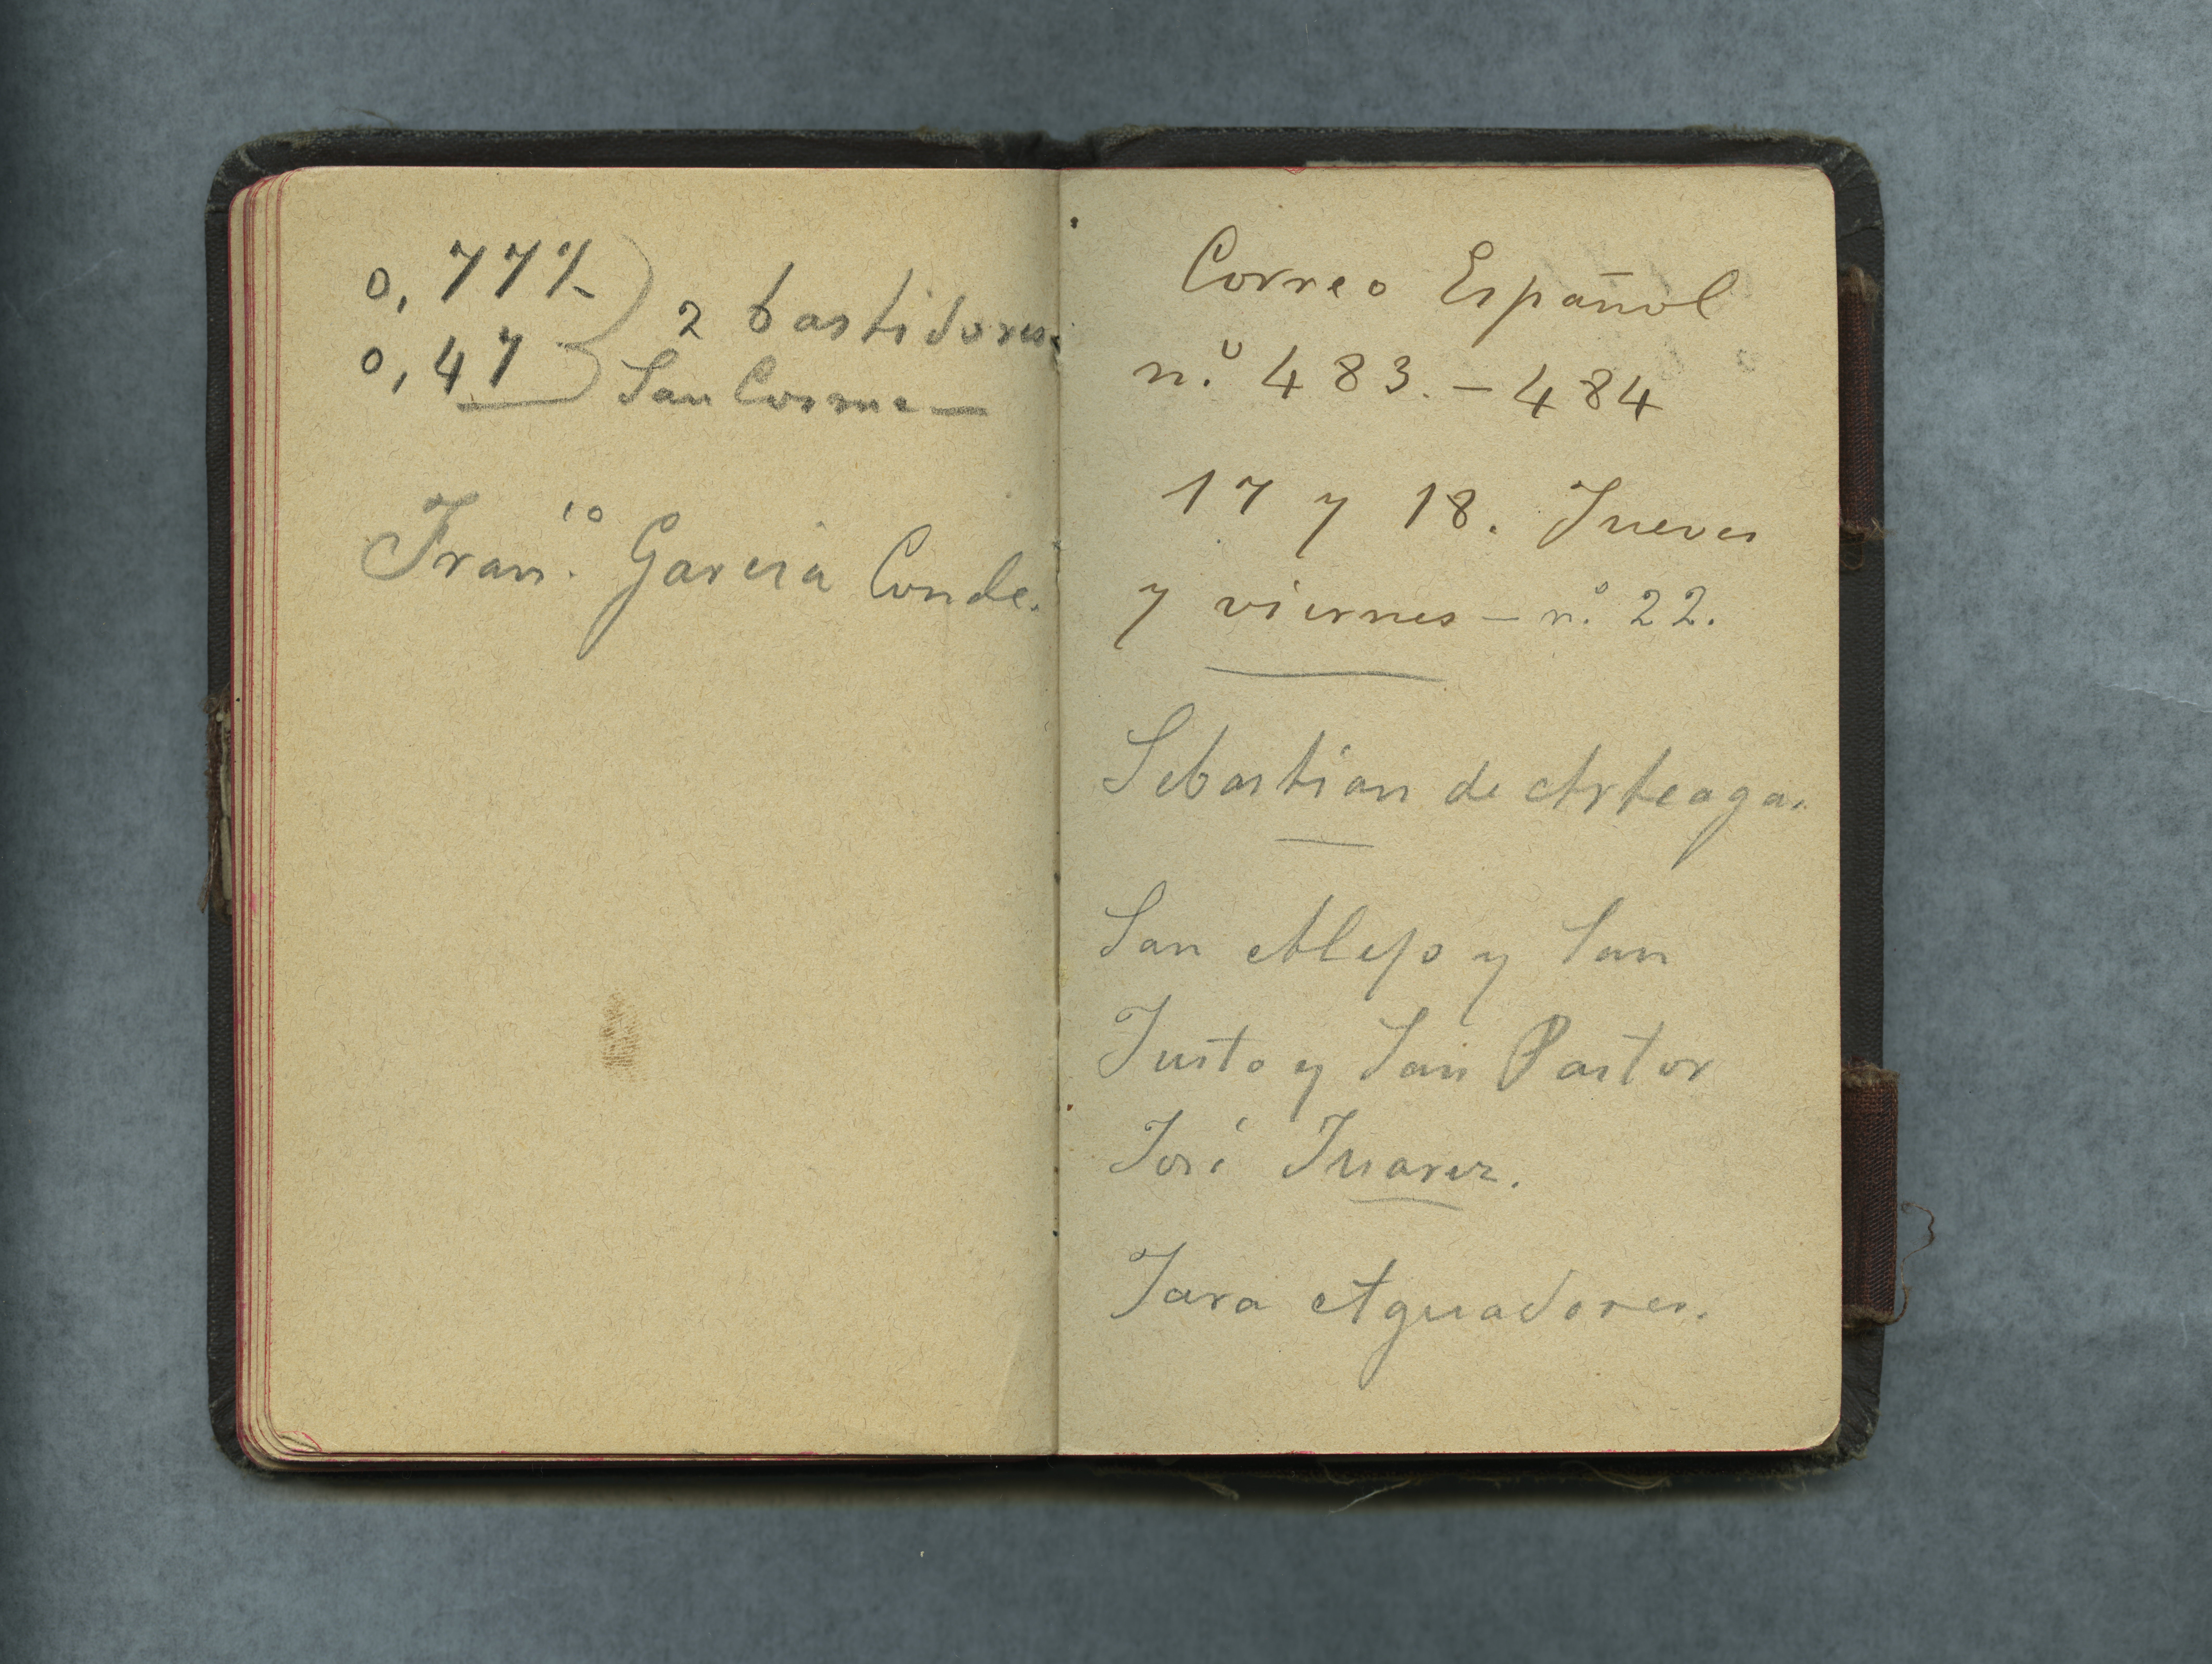 0,77½ 2 bastidores.
0,47 San Cosme—
Fran.co Garcia Conde.
Correo Español
n.º 483.–484
17 y 18. Jueves
y viernes – n.º 22.
Sebastian de Arteaga.
San Alejo y San
Justo y San Pastor
José Juarez.
Jara Aguadores.